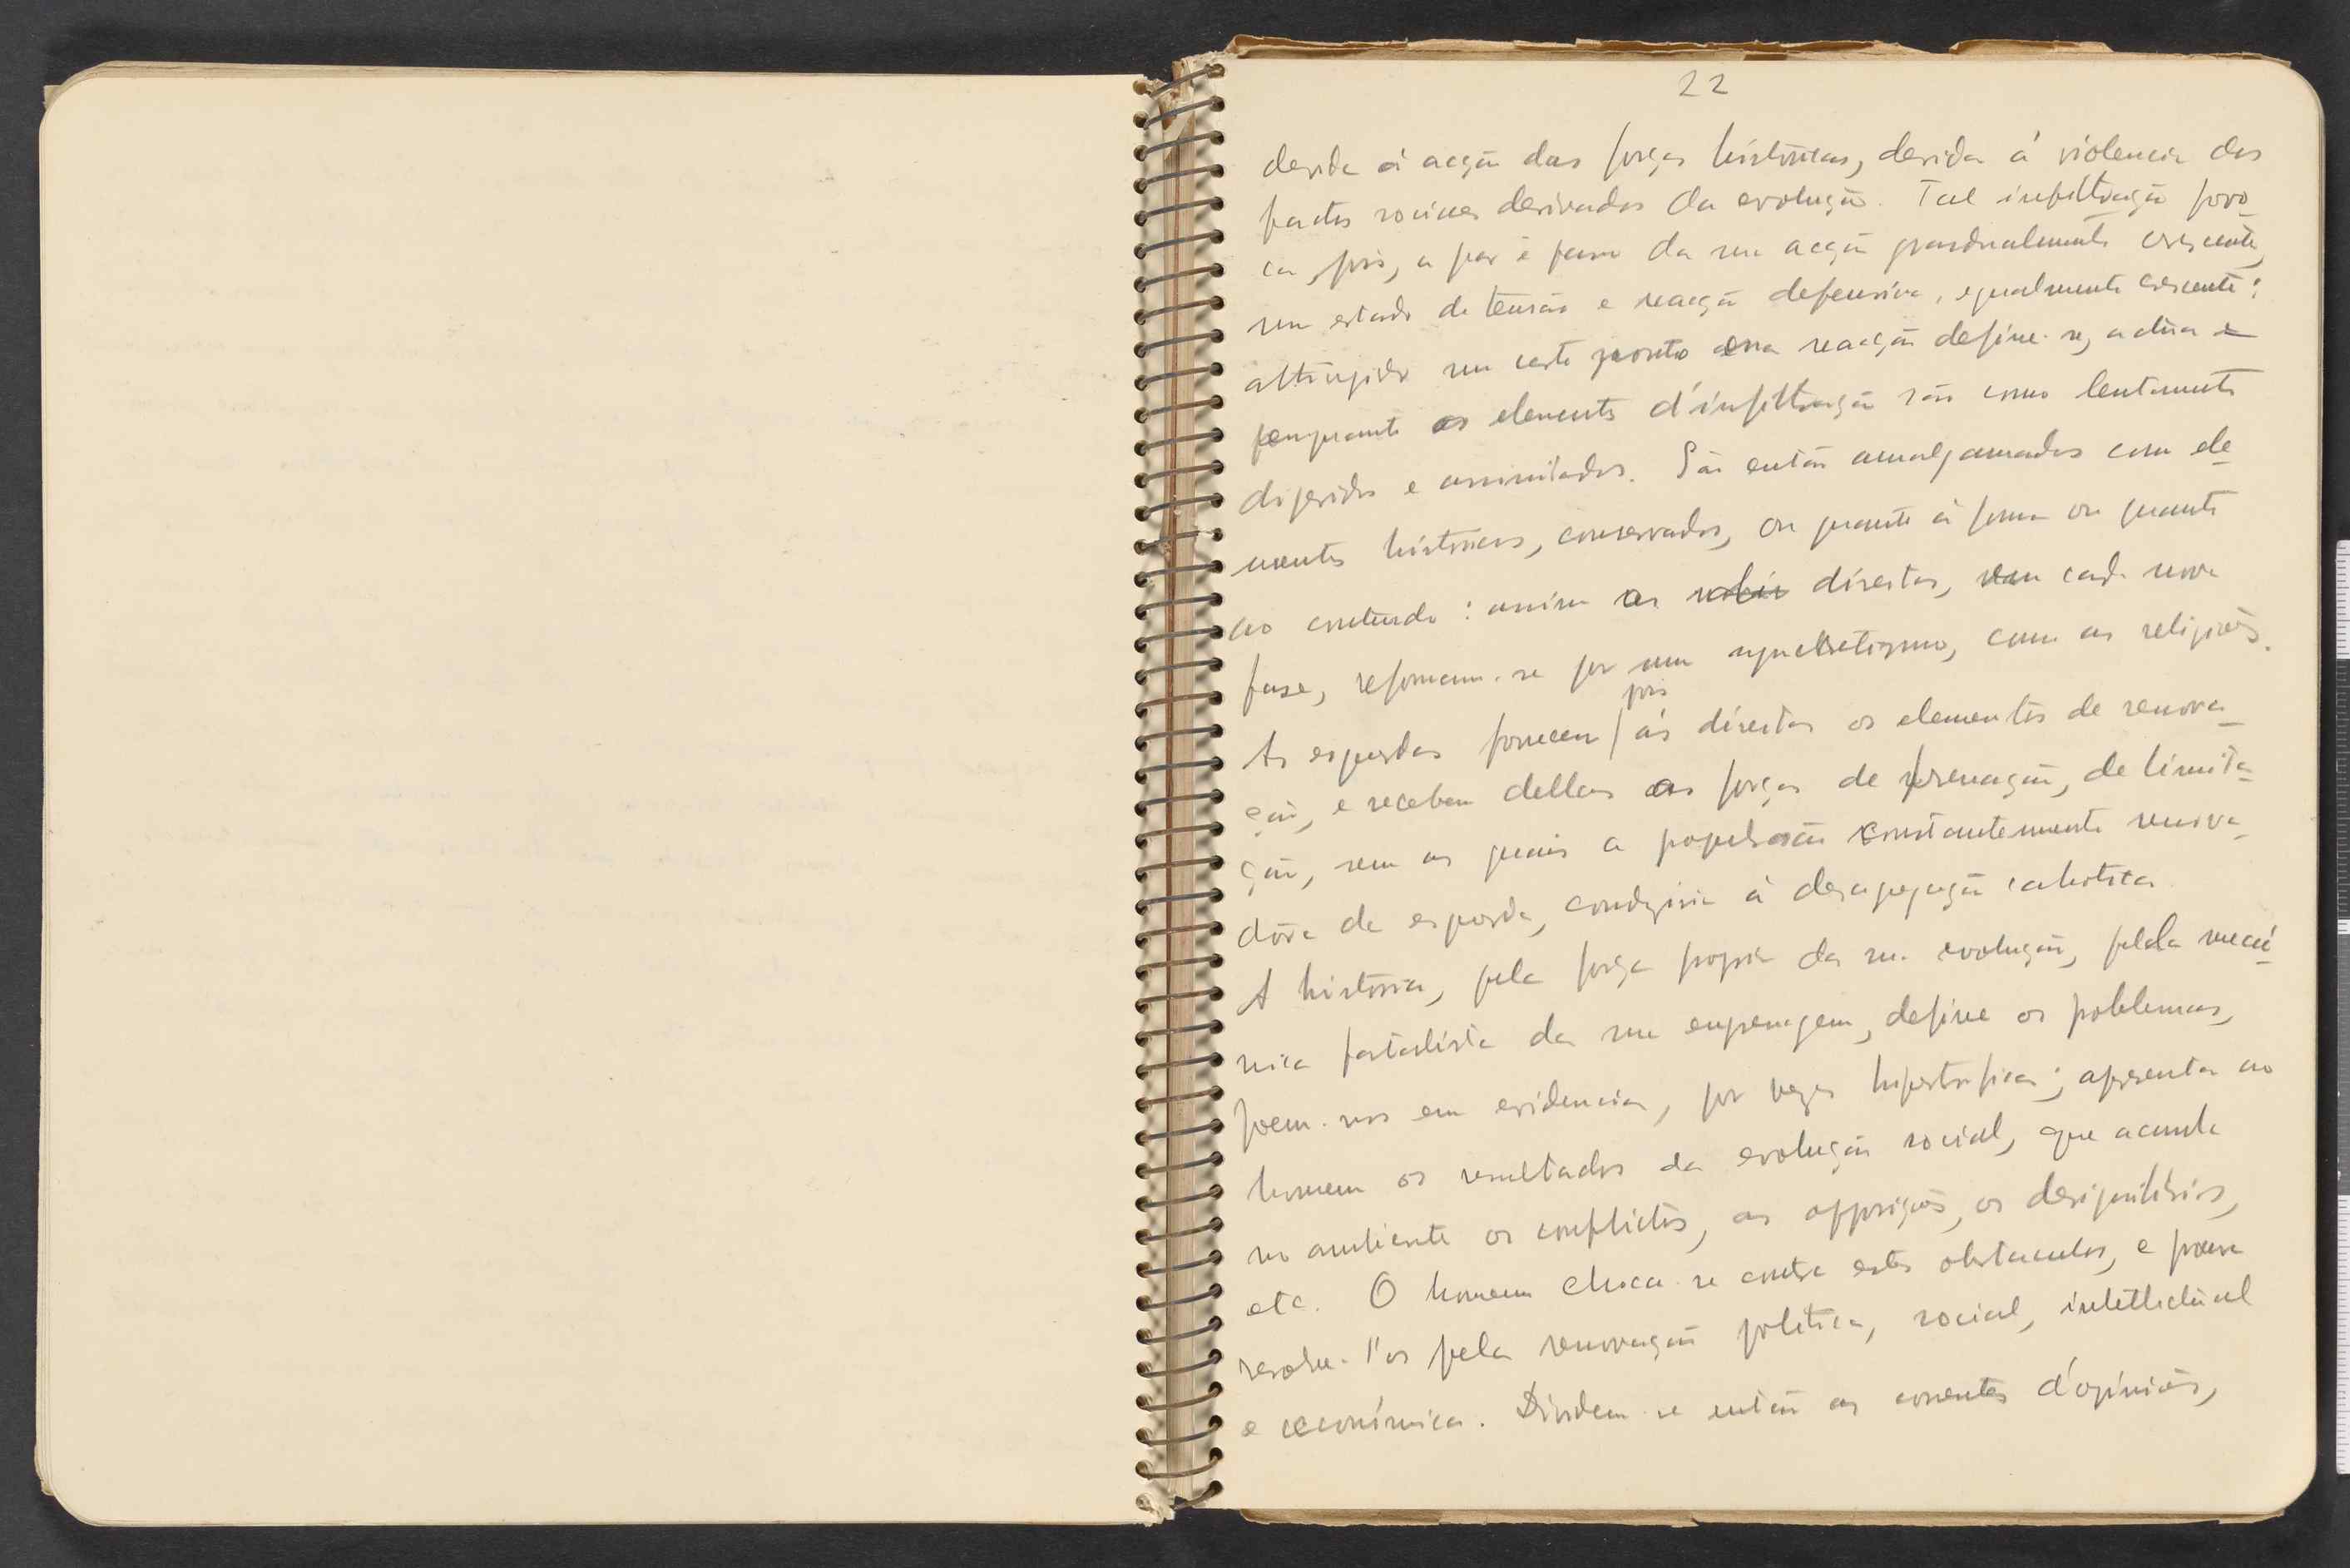 22
devida á acção das forças históricas, devida á violencia dos
factos sociaes derivados da evolução. Tal infiltração provo-
ca, pois, a par e passo da sua acção gradualmente crescente,
um estado de tensão e reacção defensiva, egualmente crescente;
attingido um certo ponto essa reacção define-se, actúa e
emquanto os elementos d'infiltração são como lentamente
digeridos e assimilados. São então amalgamados com ele-
mentos históricos, conservados, ou quanto á forma ou quanto
ao conteúdo: assim as direitas, em cada nova
fase, reformam-se por um syncretismo, como as religiões.
As esquerdas fornecem pois ás direitas os elementos de renova-
ção, e recebem dellas as forças de frenação, de limita-
ção, sem as quais a propulsão constantemente renova-
dôra da esquerda, conduziria á desagregação cahotica.
A historia, pela força propria da sua evolução, pela mecâ-
nica fatalista da sua engrenagem, define os problemas,
poem-nos em evidencia, por vezes hipertrofica; apresenta ao
homem os resultados da evolução social, que acumula
no ambiente os conflictos, as opposições, os desiquilibrios,
etc. O homem choca-se contra estes obstaculos, e procura
resolve-l'os pela renovação politica, social, intellectual
e económica. Dividem-se então as correntes d'opiniões,